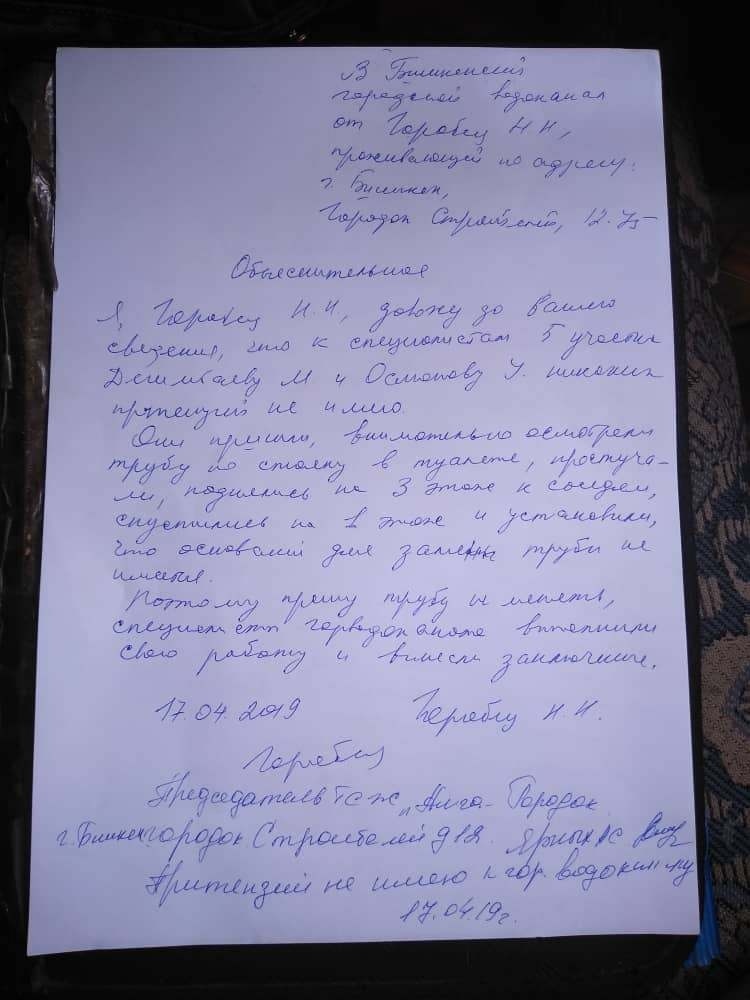 В Бишкекский
городской водоканал
от Горобец Н Н,
проживающей по адресу:
г. Бишкек,
Городок Строителей, 12-75
Объяснительное
Я, Горобец Н.Н., довожу до вашего
сведения, что к специалистам 5 участка
Дегимбаеву М и Осмонову У. никаких
претензий не имею.
Они пришли, внимательно осмотрели
трубу по стояку в туалете, простуча-
ли, поднялись на 3 этаж к соседям,
спустились на 1 этаж и установили,
что оснований для замены трубы не
имеется.
Поэтому прошу трубу не менять,
специалисты горводоканала выполнили
свою работу и вынесли заключение.
17.04.2019 Горобец Н.Н.
Горобец
Председатель ТСЖ "Анга-Городок
г. Бишкек городок Строителей д 12. Ярных С
Притензий не имею к гор. водоканалу
17.04.19г.